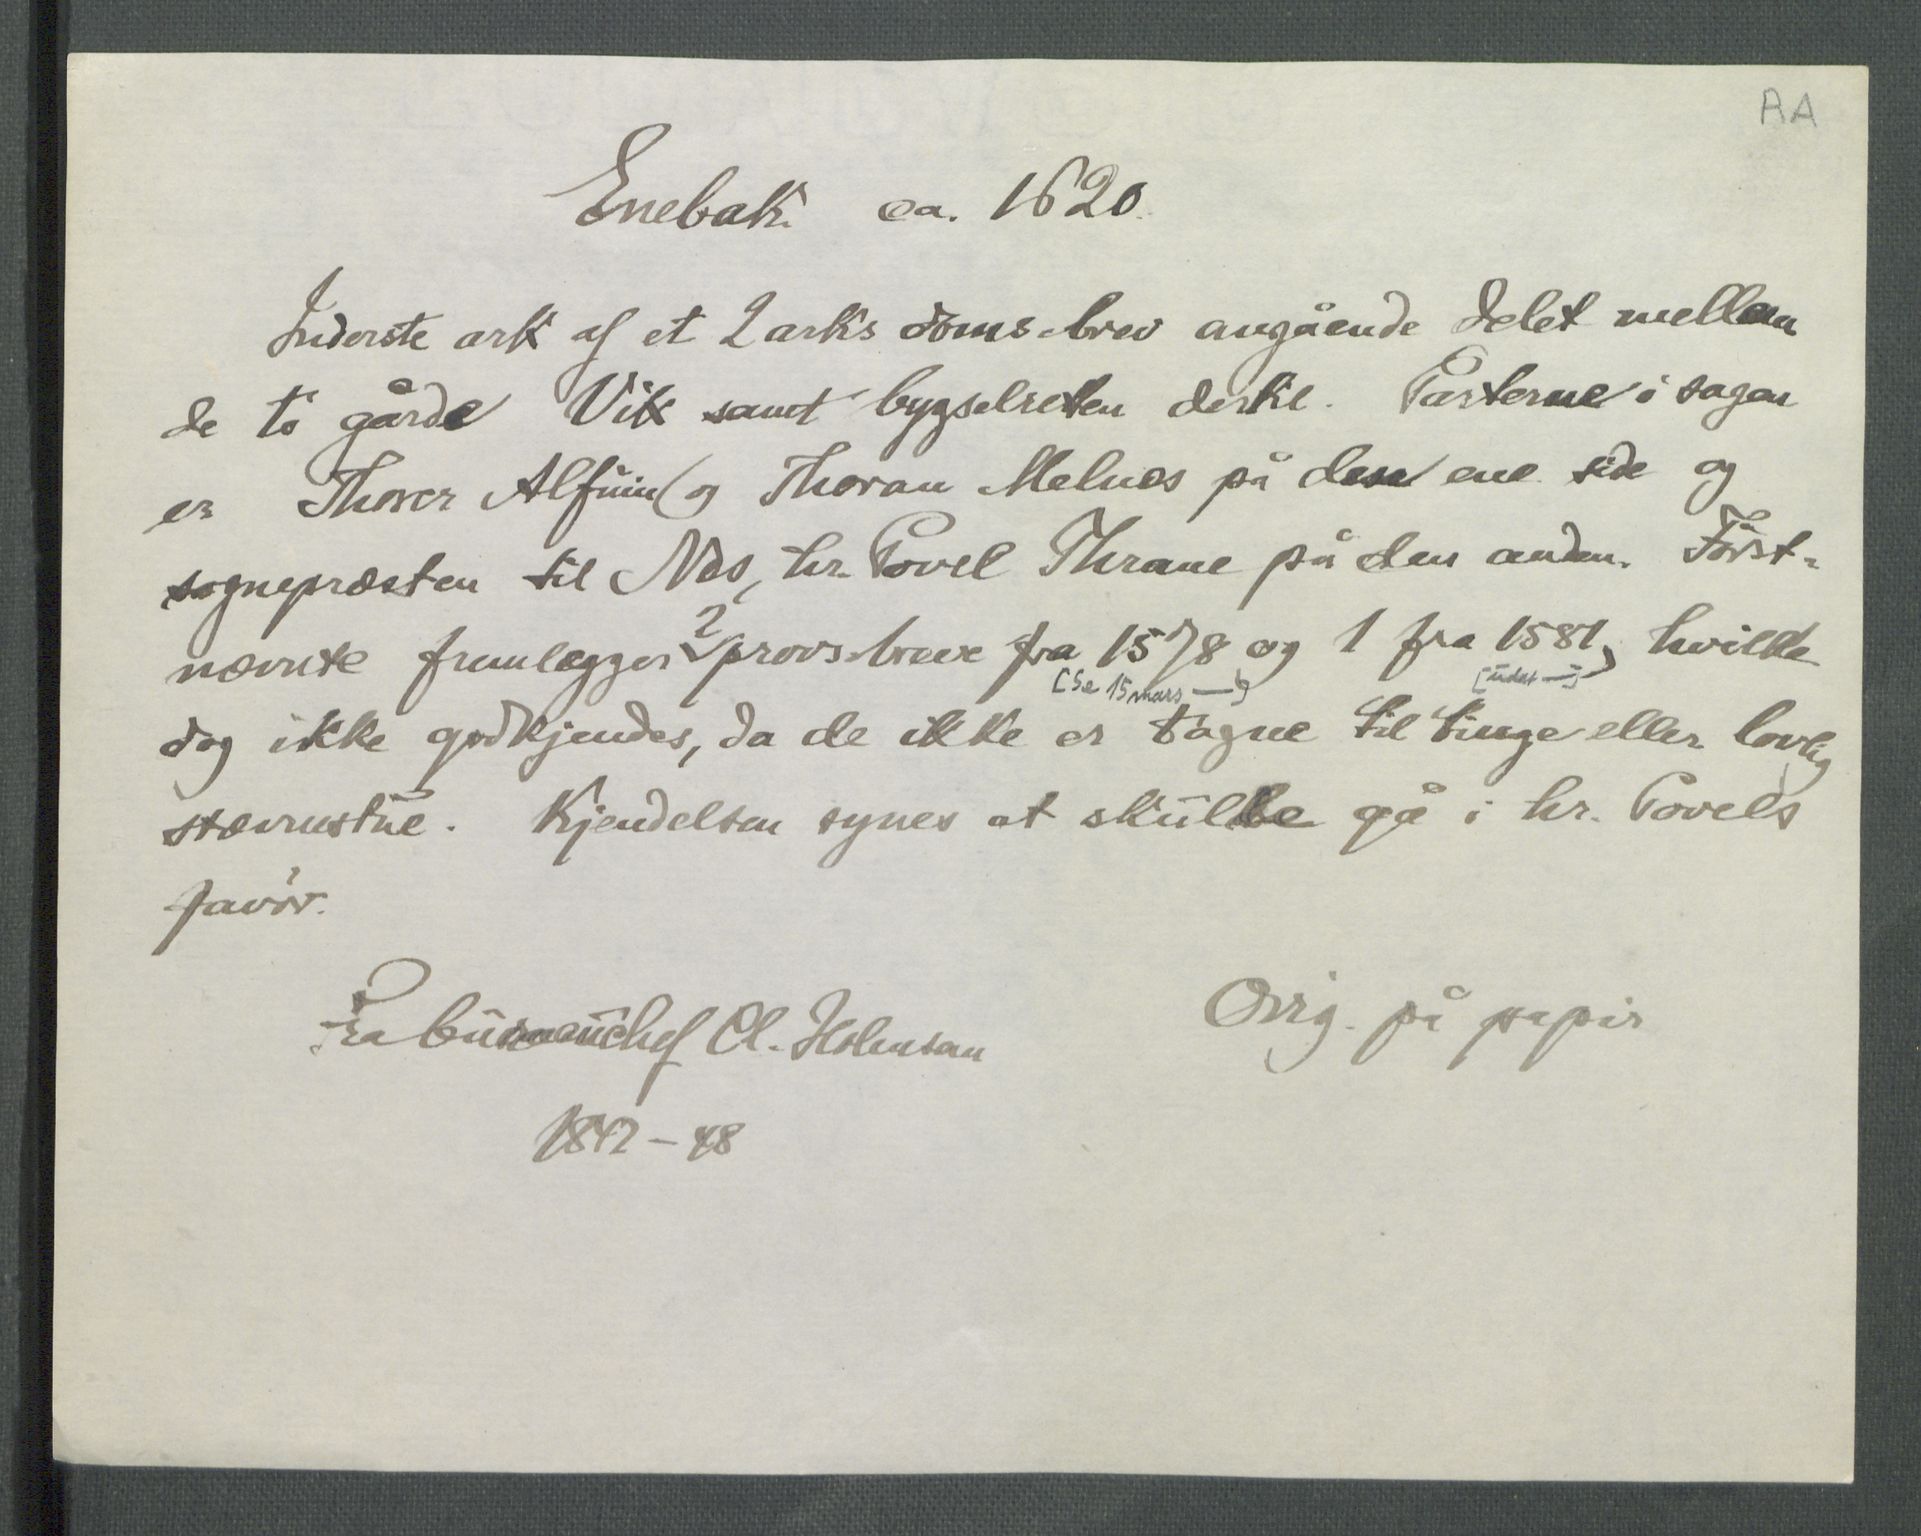 RA
Enebak. ca. 1620.
Inderste ark af et 2 arks domsbrev angående delet mellem
de to gårde Vik samt bygselretten dertil. Parterne i sagen
er Thorer Alfuin og Thoran Melnes på den ene side og
sognepræsten til Nes, hr. Povel Thrane på den anden. Først-
nævnte fremlægger 2 provsbreve fra 1578 og 1 fra 1581, hvilke
[Se 15 mars —] [udat —]
dog ikke godkjendes, da de ikke er tagne til tinge eller lovlig
stævnestue. Kjendelsen synes at skulle gå i hr. Povels
favør.
Fra bureauchef Cl. Holmsen Orig. på papir
1842-48